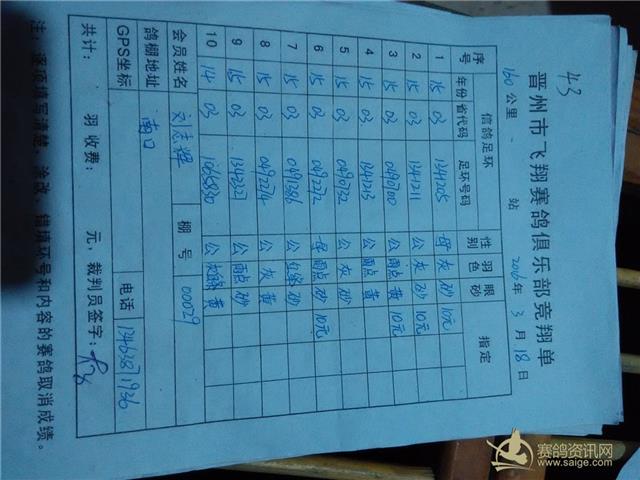 43
晋州市飞翔赛鸽俱乐部竞翔单
160公里 站 2016年3月18日
序号 信鸽足环 性别 羽色 眼砂 指定
年份 省代码 足环号码
1 15 03 1341205 母 灰 砂 10元
2 15 03 1341211 公 灰 砂 10元
3 15 03 0490100 公 雨点 黄 10元
4 15 03 1341213 公 雨点 黄
5 15 03 0490132 公 灰 砂
6 15 03 0492272 母 雨点 砂 10元
7 15 03 0491286 公 砂 10元
8 15 03 0492274 公 灰 黄
9 15 03 1342327 公 雨点 砂
10 14 03 公 黄
会员姓名 刘志辉 棚号 00029
鸽棚地址 南口
GPS坐标 电话 13463871936
共计: 羽 收费: 元, 裁判员签字:
注: 逐项填写清楚、涂改、错填环号和内容的赛鸽取消成绩。
赛鸽资讯网
www.saige.com